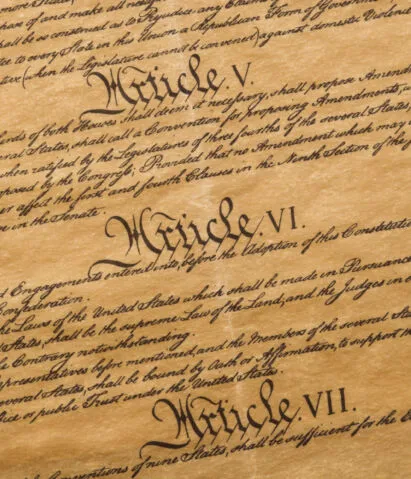 ose and make all needf
hall be so construed as to Prejudice any Claims of the
tee to every State in this Union a Republican Form of Governm
ture (when the Legislature cannot be convened) against domestic Violence
Article. V.
irds of both Houses shall deem it necessary, shall propose Amendm
eral States, shall call a Convention for proposing Amendments, w
when ratified by the Legislatures of three fourths of the several States
oposed by the Congress; Provided that no Amendment which may
er affect the first and fourth Clauses in the Ninth Section of the
e in the Senate.
Article. VI.
d Engagements entered into, before the Adoption of this Constitutio
Confederation.
he Laws of the United States which shall be made in Pursuance
States, shall be the supreme Law of the Land; and the Judges in
e Contrary notwithstanding.
presentatives before mentioned, and the Members of the several State
everal States, shall be bound by Oath or Affirmation, to support th
ice or public Trust under the United States.
Article. VII.
Conventions of nine States, shall be sufficient for the